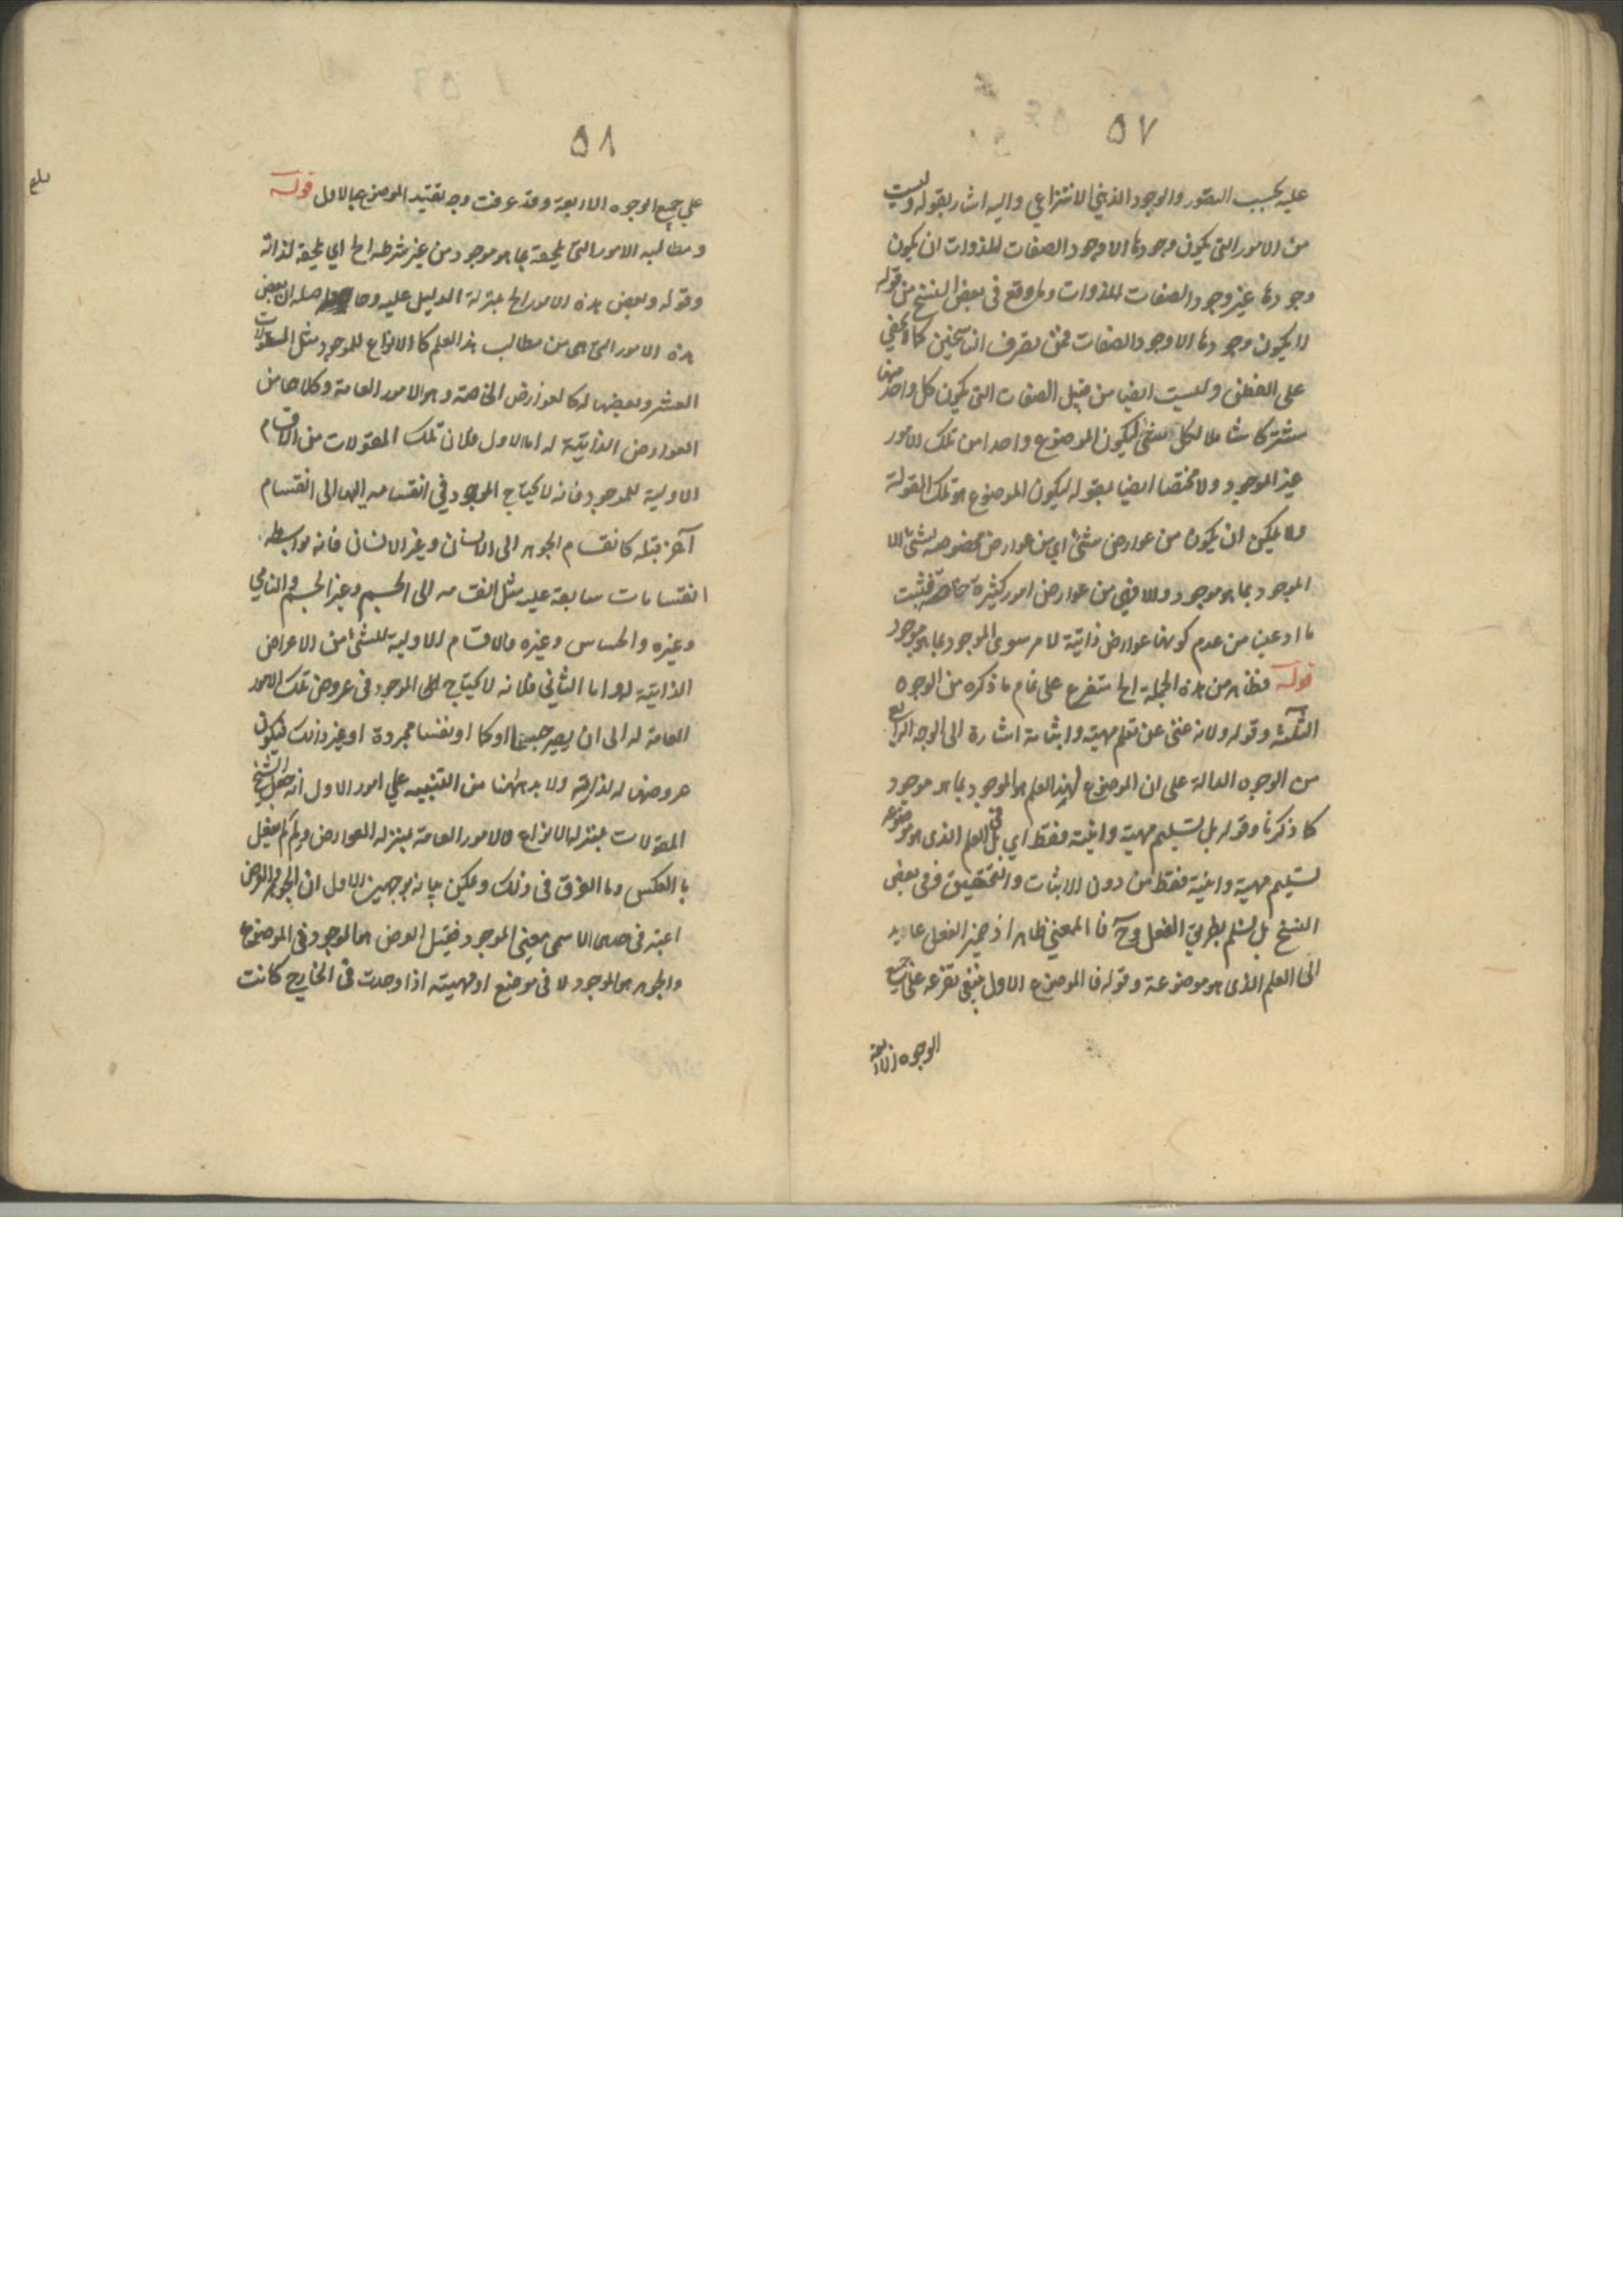 ٥٧
عليه بحسب التصور والوجود الذهني الانتزاعي واليه اشار بقوله وليست
من الامور التي يكون وجودها الا وجود الصفات للذوات ان يكون
وجودها غير وجود الصفات للذوات وما وقع في بعض النسخ من قوله
لا يكون وجودها الا وجود الصفات فمن تصرف الناسخين كما لا يخفى
على الفطن وليست ايضا من قبيل الصفات التي يكون كل واحد منها
مشتركا شاملا لكل شئ ليكون الموضوع واحدا من تلك الامور
غير الموجود ولا مختصا ايضا بمقوله ليكون الموضوع هو تلك المقولة
ولا يمكن ان يكون من عوارض شئ اي من عوارض مخصوصه بشئ الا
الموجود بما هو موجود ولا فهي من عوارض امور كثيرة خاصة فثبت
ما ادعين من عدم كونها عوارض ذاتية لامر سوى الموجود بما هو موجود
قوله فظاهر من هذه الجملة الخ متفرع على تمام ما ذكره من الوجوه
الثلثه وقوله ولانه غني عن تعلم مهيته واثباته اشارة الى الوجه الرابع
من الوجوه الدالة على ان الموضوع لهذا العلم هو الموجود بما هو موجود
كما ذكرنا وقوله بل تسليم مهيته وانيته فقط اي بل في العلم الذي هو موضوعه
تسليم مهيته وانيته فقط من دون الاثبات والتحقيق وفي بعض
النسخ بل يتسلم بطريق الفعل وح فالمعني ظاهر اذ ضمير الفعل عايد
الى العلم الذي هو موضوعة وقوله فالموضوع الاول ينبغي تفرعه على جميع
الوجوه الاربعة
٥٨
علي جميع الوجوه الاربعة وقد عرفت وجه تقييد الموضوع بالاول قوله
ومطالبه الامور التي تلحقه بما هو موجود من غير شرط الخ اي تلحقه لذاته
وقوله وبعض هذه الامور الخ بمنزلة الدليل عليه وحاصله ان بعض
هذه الامور التي هي من مطالب هذا العلم كالانواع للموجود مثل المقولات
العشر وبعضها له كالعوارض الخاصة وهو الامور العامة وكلاهما من
العوارض الذاتية له اما الاول فلان تلك المقولات من الاقسام
الاولية للموجود فانه لا يحتاج الموجود في انقسامه اليها الى انقسام
آخر قبله كانقسام الجوهر الى الانسان وغير الانسان فانه بواسطه
انقسامات سابعة عليه مثل انقسامه الى الجسم وغير الجسم والنامي
وغيره والحساس وغيره والاقسام الاولية للشئ من الاعراض
الذاتية له واما الثاني فلانه لا يحتاج الموجود في عروض تلك الامور
العامة له الى ان يصير جسما او كما او نفسا مجردة او غير ذلك فيكون
عروضها له لذاته ولا بد ههنا من التنبيه علي امور الاول انه جعل الشيخ
المقولات بمنزله الانواع والامور العامة بمنزله العوارض ولم لم يفعل
بالعكس وما الفرق في ذلك ويمكن بيانه بوجهين الاول ان الجوهر والعرض
اعتبر في حدهما الاسمي معنى الموجود فقيل العرض هو الموجود في الموضوع
والجوهر هو الموجود لا في موضع او مهيته اذا وجدت في الخارج كانت